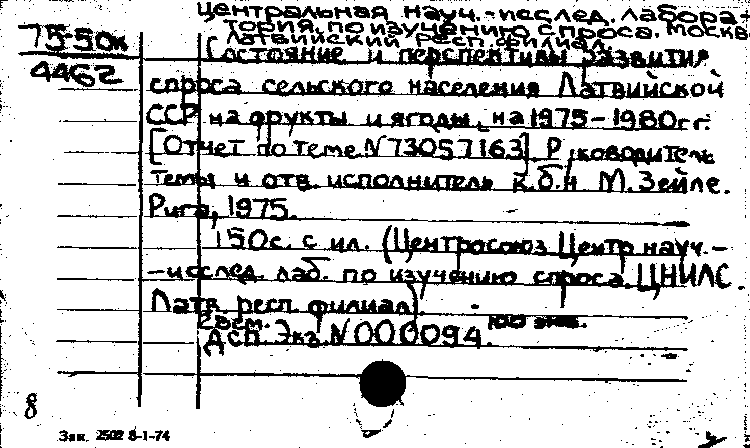 Центральная науч.-исслед. лабора-
тория по изучению спроса. Москва
Латвийский респ. филиал.
75-50к
4462
Состояние и перспективы развития
спроса сельского населения Латвийской
ССР на фрукты и ягоды, на 1975-1980гг.
[Отчет по теме N 73057163]. Руководитель
темы и отв. исполнитель к.б.н М. Зейле.
Рига, 1975.
150с. с ил. (Центросоюз Центр науч.-
-исслед. лаб. по изучению спроса. ЦНИЛС.
Латв. респ. филиал).
100 экз.
ДСП. Экз. N000094.
8
Зак. 2502 8-1-74